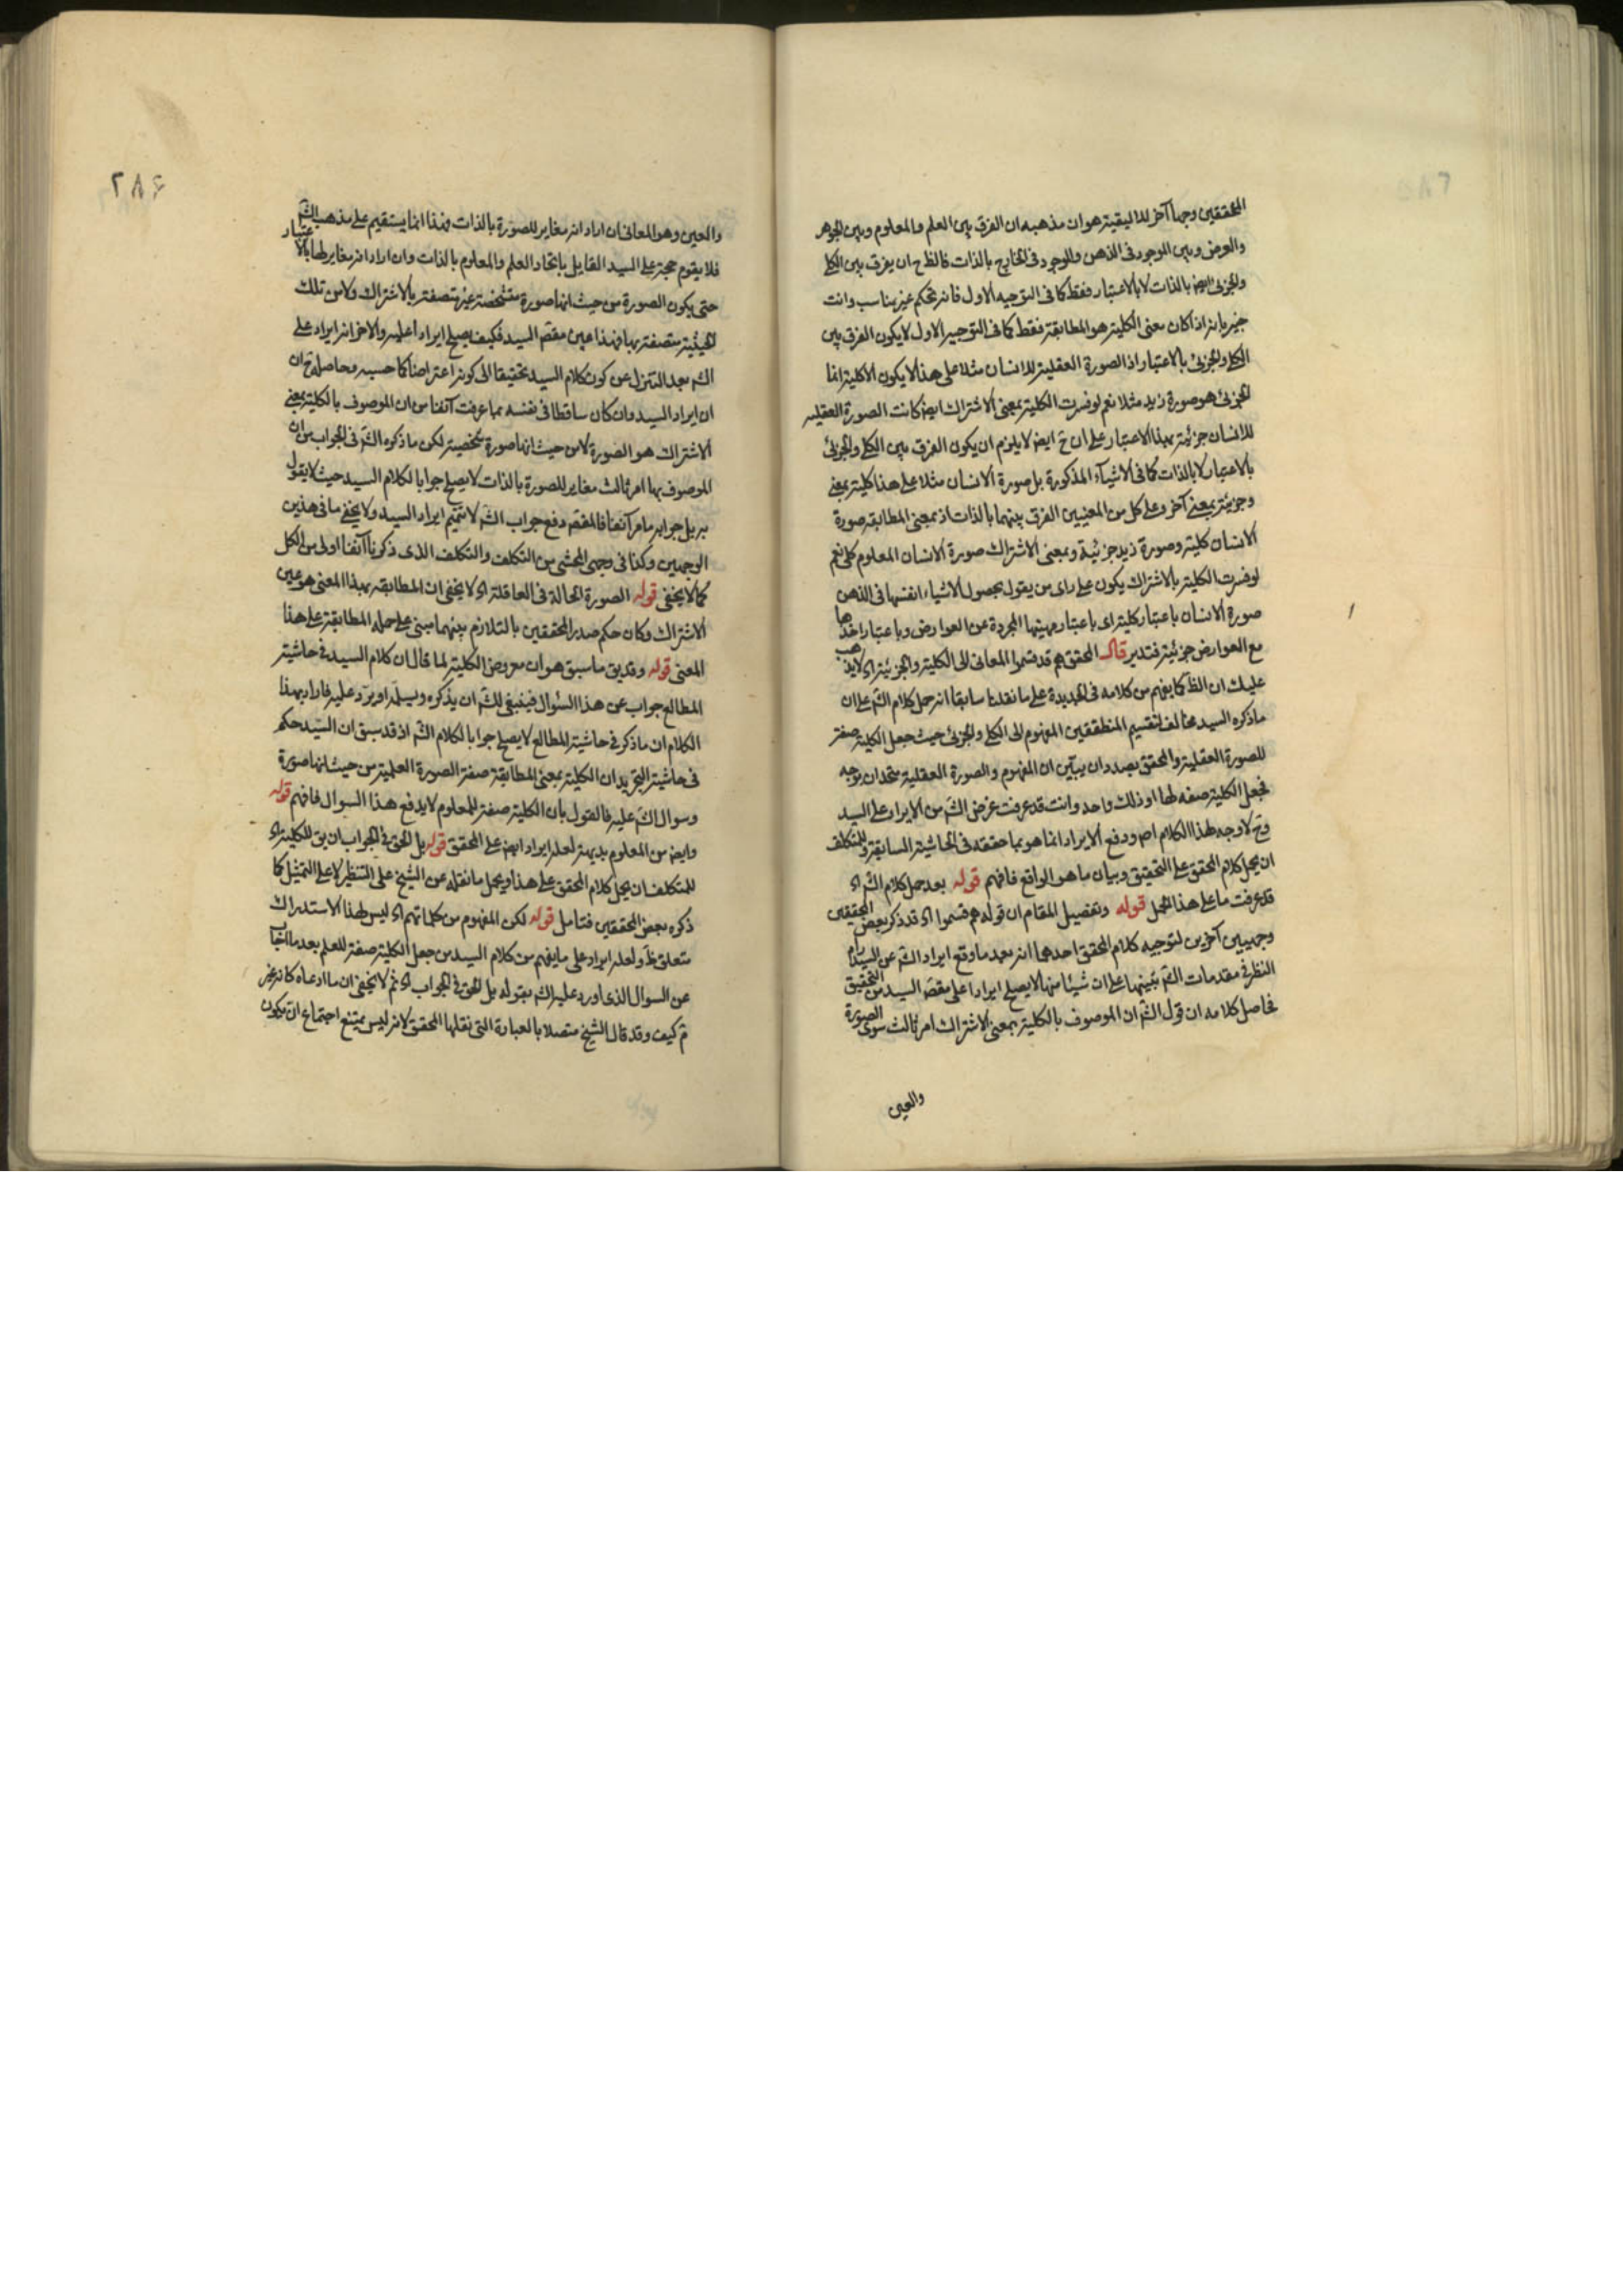 المحققين وجها آخر للاليقية هو ان مذهبه ان الفرق بين العلم والمعلوم وبين الجوهر
والعرض وبين الموجود فى الذهن والموجود فى الخارج بالذات فالظ ح ان يفرق بين الكلى
والجزئى ايض بالذات لا بالاعتبار فقط كما فى التوجيه الاول فانه تحكم غير مناسب وانت
خبير بانه اذا كان معنى الكلية هو المطابقة فقط كما فى التوجيه الاول لا يكون الفرق بين
الكلى والجزئى بالاعتبار اذ الصورة العقلية للانسان مثلا على هذا لا يكون الا كلية انما
الجزئى هو صورة زيد مثلا نعم لو فسرت الكلية بمعنى الاشتراك ايض كانت الصورة العقليه
للانسان جزئية بهذا الاعتبار على ان ح ايض لا يلزم ان يكون الفرق بين الكلى والجزئى
بالاعتبار لا بالذات كما فى الاشياء المذكورة بل صورة الانسان مثلا على هذا كلية بمعنى
وجزئية بمعنى آخر وعلى كل من المعنيين الفرق بينهما بالذات اذ بمعنى المطابقه صورة
الانسان كلية وصورة زيد جزئية وبمعنى الاشتراك صورة الانسان المعلوم كلى نعم
لو فسرت الكلية بالاشتراك يكون على راى من يقول بحصول الاشياء انفسها فى الذهن
صورة الانسان باعتبار كلية اى باعتبار مهيتها المجردة عن العوارض وباعتبار اخذها
مع العوارض جزئية فتدبر قال المحقق هم قد قسموا المعانى الى الكلية والجزئية اه لا يذهب
عليك ان الظ كما يفهم من كلامه فى الجديدة على ما نقلنا سابقا انه حمل كلام الشم على ان
ماذكره السيد مخالف لتقسيم المنطقيين المفهوم الى الكلى والجزئى حيث جعل الكلية صفة
للصورة العقلية والمحقق بصدد ان يبين ان المفهوم والصورة العقلية متحدان بوجه
فجعل الكلية صفه لها او ذلك واحد وانت قد عرفت غرض الشم من الايراد على السيد
وح لا وجه لهذا الكلام اصم ودفع الايراد انما هو بما حققه فى الحاشية السابقة وللمتكلف
ان يحمل كلام المحقق على التحقيق وبيان ما هو الواقع فافهم قوله بعد حمل كلام الشم اه
قد عرفت ما على هذا الحمل قوله وتفصيل المقام ان قوله هم قسموا اه قد ذكر بعض المحققين
وجهين آخرين لتوجيه كلام المحقق احدهما انه بعد ما وقع ايراد الشم عن السيد رام
النظر فى مقدمات الشم تنبيها على ان شيئا منها لا يصلح ايرادا على مقص السيد من التحقيق
فحاصل كلامه ان قول الشم ان الموصوف بالكلية بمعنى الاشتراك امر ثالث سوى الصورة
والعين
٢٨۶
والعين وهو المعانى ان اراد انه مغاير للصورة بالذات فهذا انما يستقيم على مذهب الشم
فلا يقوم حجة على السيد القايل باتحاد العلم والمعلوم بالذات وان اراد انه مغاير لها بالاعتبار
حتى يكون الصورة من حيث انها صورة متشخصة غير متصفة بالاشتراك ولا من تلك
الحيثية متصفة بها فهذا عين مقص السيد فكيف يصلح ايرادا عليه والاخر انه ايراد على
الشم بعد التنزل عن كون كلام السيد تحقيقا الى كونه اعتراضا كما حسبه ومحاصله ح ان
ان ايراد السيد وان كان ساقطا فى نفسه بما عرفت آنفا من ان الموصوف بالكلية بمعنى
الاشتراك هو الصورة لا من حيث انها صورة شخصية لكن ما ذكره الشم فى الجواب من ان
الموصوف بها امر ثالث مغاير للصورة بالذات لا يصلح جوابا لكلام السيد حيث لا يقول
به بل جوابه ما مر آنفا فالمقص دفع جواب الشم لا تتميم ايراد السيد ولا يخفى ما فى هذين
الوجهين وكذا فى وجهى المحشى من التكلف والتكلف الذى ذكرنا آنفا اولى من الكل
كما لا يخفى قوله الصورة الحالة فى العاقلة اه لا يخفى ان المطابقه بهذا المعنى هو عين
الاشتراك وكان حكم صدر المحققين بالتلازم بينهما مبنى على حمله المطابقة على هذا
المعنى قوله وقد يق ما سبق هو ان معروض الكلية لما قال ان كلام السيد فى حاشية
المطالع جواب عن هذا السؤال فينبغى للشم ان يذكره ويسلمه او يرد عليه فاراد بهذا
الكلام ان ما ذكر فى حاشية المطالع لا يصلح جوابا لكلام الشم اذ قد سبق ان السيد حكم
فى حاشية التجريد ان الكلية بمعنى المطابقة صفة الصورة العلمية من حيث انها صورة
وسوال الشم عليه فالقول بان الكلية صفة للمعلوم لا يدفع هذا السوال فافهم قوله
وايض من المعلوم بديهة لعله ايراد ايض على المحقق قوله بل الحق فى الجواب ان يق للكلية اه
للمتكلف ان يحمل كلام المحقق على هذا ويحمل ما نقله عن الشيخ على التنظير لا على التمثيل كما
ذكره بعض المحققين فتامل قوله لكن المفهوم من كلماتهم اه ليس لهذا الاستدراك
متعلق ظ ولعله ايراد على ما يفهم من كلام السيد من جعل الكلية صفة للعلم بعد ما اجاب
عن السوال الذى اورد عليه الشم بقوله بل الحق فى الجواب اه ثم لا يخفى ان ما ادعاه كانه غير
تم كيف وقد قال الشيخ متصلا بالعبارة التى نقلها المحقق لانه ليس يمتنع اجتماع ان يكون